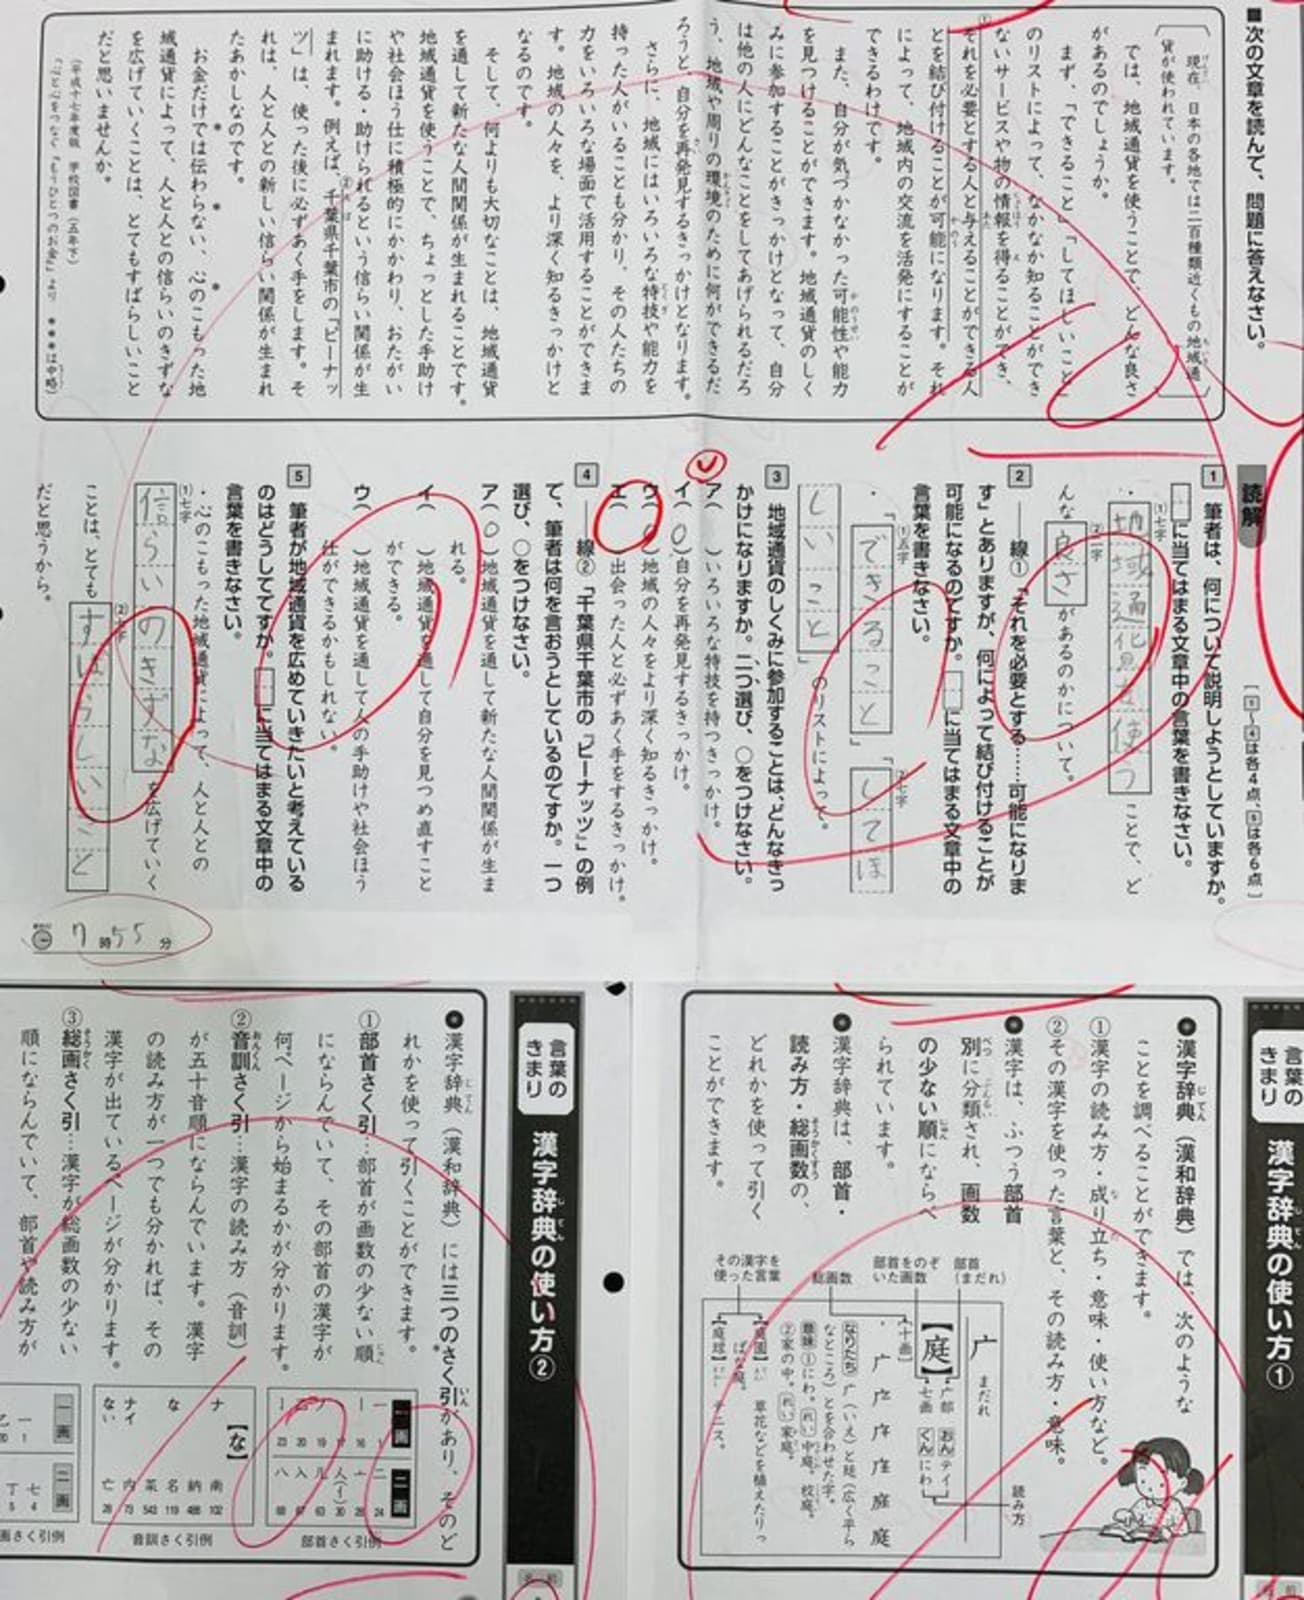 ■次の文章を読んで、問題に答えなさい。
現在、日本の各地では二百種類近くもの地域通
貨が使われています。
では、地域通貨を使うことで、どんな良さ
があるのでしょうか。
まず、「できること」「してほしいこと」
のリストによって、なかなか知ることができ
ないサービスや物の情報を得ることができ、
①それを必要とする人と与えることができる人
とを結び付けることが可能になります。それ
によって、地域内の交流を活発にすることが
できるわけです。
また、自分が気づかなかった可能性や能力
を見つけることができます。地域通貨のしく
みに参加することがきっかけとなって、自分
は他の人にどんなことをしてあげられるだろ
う、地域や周りの環境のために何ができるだ
ろうと、自分を再発見するきっかけとなります。
さらに、地域にはいろいろな特技や能力を
持った人がいることも分かり、その人たちの
力をいろいろな場面で活用することができま
す。地域の人々を、より深く知るきっかけと
なるのです。
そして、何よりも大切なことは、地域通貨
を通して新たな人間関係が生まれることです。
地域通貨を使うことで、ちょっとした手助け
や社会ほう仕に積極的にかかわり、おたがい
に助ける・助けられるという信らい関係が生
まれます。例えば、②千葉県千葉市の「ピーナッ
ツ」は、使った後に必ずあく手をします。そ
れは、人と人との新しい信らい関係が生まれ
たあかしなのです。
＊　＊　＊
お金だけでは伝わらない、心のこもった地
域通貨によって、人と人との信らいのきずな
を広げていくことは、とてもすばらしいこと
だと思いませんか。
（平成十七年度版　学校図書（五年下）
『「人と心をつなぐ「もうひとつのお金」』より　＊＊＊は中略）
読解
〔1〜4は各4点、5は各6点〕
1 筆者は、何について説明しようとしていますか。
□に当てはまる文章中の言葉を書きなさい。
①七字
・地域通貨を使うことで、ど
②二字
んな良さがあるのかについて。
2 ――線①「それを必要とする……可能になりま
す」とありますが、何によって結び付けることが
可能になるのですか。□に当てはまる文章中の
言葉を書きなさい。
①五字 ②七字
・「できること」「してほ
しいこと」のリストによって。
3 地域通貨のしくみに参加することは、どんなきっ
かけになりますか。二つ選び、○をつけなさい。
ア（　）いろいろな特技を持つきっかけ。
イ（○）自分を再発見するきっかけ。
ウ（○）地域の人々をより深く知るきっかけ。
エ（　）出会った人と必ずあく手をするきっかけ。
4 ――線②「千葉県千葉市の『ピーナッツ』」の例
で、筆者は何を言おうとしているのですか。一つ
選び、○をつけなさい。
ア（○）地域通貨を通して新たな人間関係が生ま
れる。
イ（　）地域通貨を通して自分を見つめ直すこと
ができる。
ウ（　）地域通貨を通して人の手助けや社会ほう
仕ができるかもしれない。
5 筆者が地域通貨を広めていきたいと考えている
のはどうしてですか。□に当てはまる文章中の
言葉を書きなさい。
・心のこもった地域通貨によって、人と人との
①七字
信らいのきずなを広げていく
②七字
ことは、とてもすばらしいこと
だと思うから。
7時55分
言葉の
きまり
漢字辞典の使い方①
漢字辞典（漢和辞典）では、次のような
ことを調べることができます。
①漢字の読み方・成り立ち・意味・使い方など。
②その漢字を使った言葉と、その読み方・意味。
漢字は、ふつう部首
別に分類され、画数
の少ない順にならべ
られています。
漢字辞典は、部首・
読み方・総画数の、
どれかを使って引く
ことができます。
部首
（まだれ）
部首をのぞ
いた画数
総画数
その漢字を
使った言葉
読み方
广　まだれ
【庭】
广部
七画
おん テイ
くん にわ
【十画】
なりたち 广（いえ）と廷（広く平ら
なところ）とを合わせた字。
意味 ①にわ。れい 中庭。校庭。
②家の中。れい 家庭。
【庭園】草花などを植えたりっ
ぱな庭。
【庭球】テニス。
言葉の
きまり
漢字辞典の使い方②
漢字辞典（漢和辞典）には三つのさく引があり、そのど
れかを使って引くことができます。
①部首さく引…部首が画数の少ない順
にならんでいて、その部首の漢字が
何ページから始まるかが分かります。
②音訓さく引…漢字の読み方（音訓）
が五十音順にならんでいます。漢字
の読み方が一つでも分かれば、その
漢字が出ているページが分かります。
③総画さく引…漢字が総画数の少ない
順にならんでいて、部首や読み方が
一画
二画
部首さく引例
【な】
ナ
な
ナイ
ない
南 102
納 488
名 119
菜 543
内 73
亡 28
音訓さく引例
一画
一 1
二画
七 4
丁 5
画さく引例